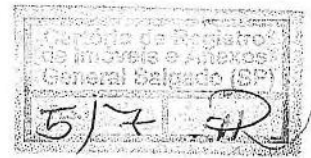 Cartório de Registro
de Imóveis e Anexos
General Salgado (SP)
5/7